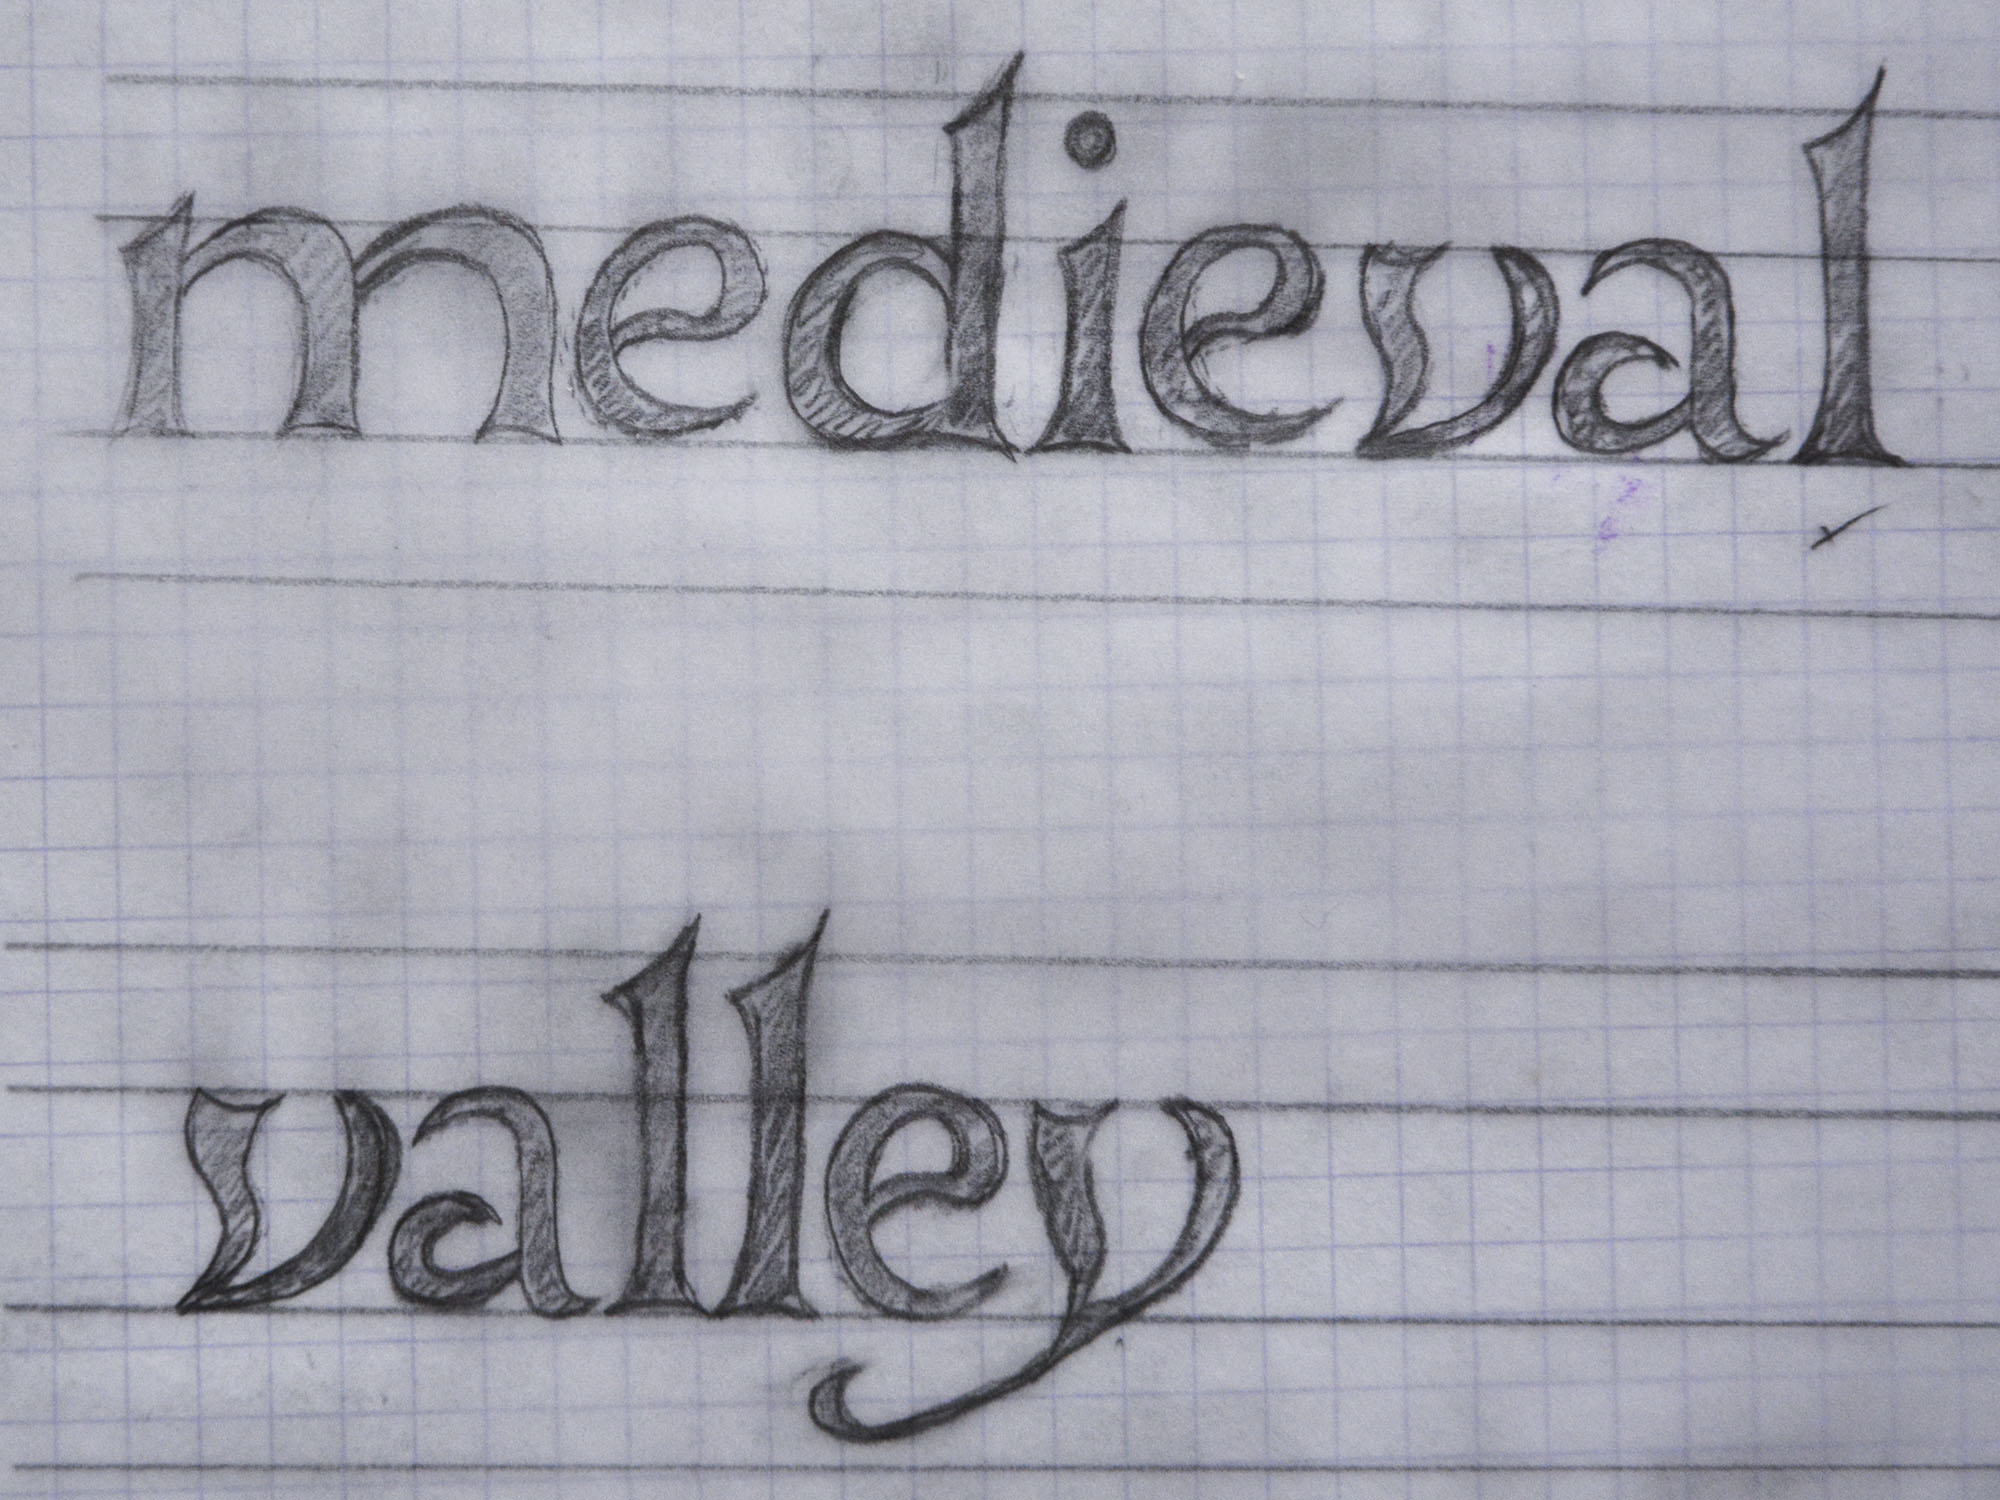 medieval
valley